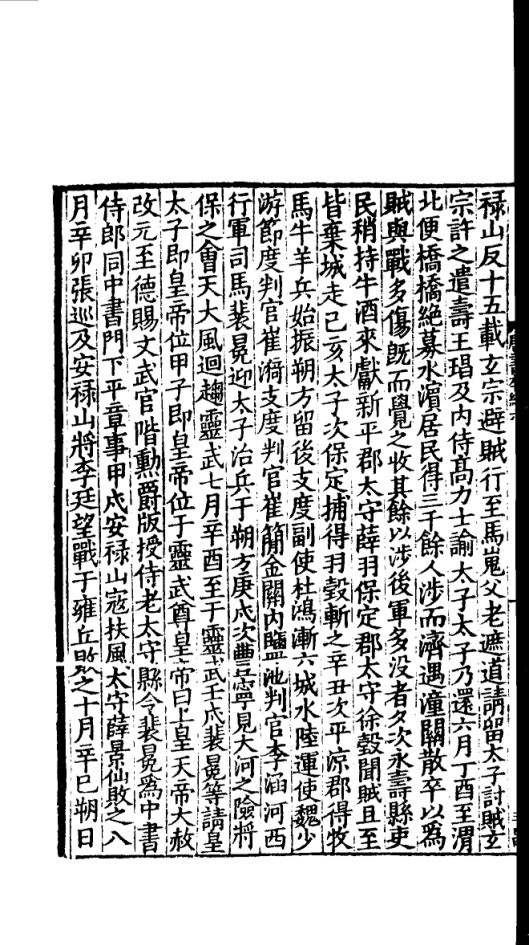 禄山反十五載玄宗避賊行至馬嵬父老遮道請留太子討賊玄
宗許之遣壽王瑁及內侍髙力士諭太子太子乃還六月丁酉至渭
北便橋橋絶募水濵居民得三千餘人涉而濟遇潼關散卒以爲
賊與戰多傷既而覺之收其餘以涉後軍多没者夕次永壽縣吏
民稍持牛酒來獻新平郡太守薛羽保定郡太守徐瑴聞賊且至
皆棄城走己亥太子次保定捕得羽瑴斬之辛丑次平涼郡得牧
馬牛羊兵始振朔方留後支度副使杜鴻漸六城水陸運使魏少
游節度判官崔漪支度判官崔簡金關內鹽池判官李涵河西
行軍司馬裴冕迎太子治兵于朔方庚戍次豊寧見大河之險將
保之會天大風迴趨靈武七月辛酉至于靈武壬戍裴冕等請皇
太子即皇帝位甲子即皇帝位于靈武尊皇帝曰上皇天帝大赦
改元至德賜文武官階勳爵版授侍老太守縣令裴冕爲中書
侍郎同中書門下平章事甲戍安禄山寇扶風太守薛景仙敗之八
月辛卯張巡及安禄山將李廷望戰于雍丘敗之十月辛巳朔日